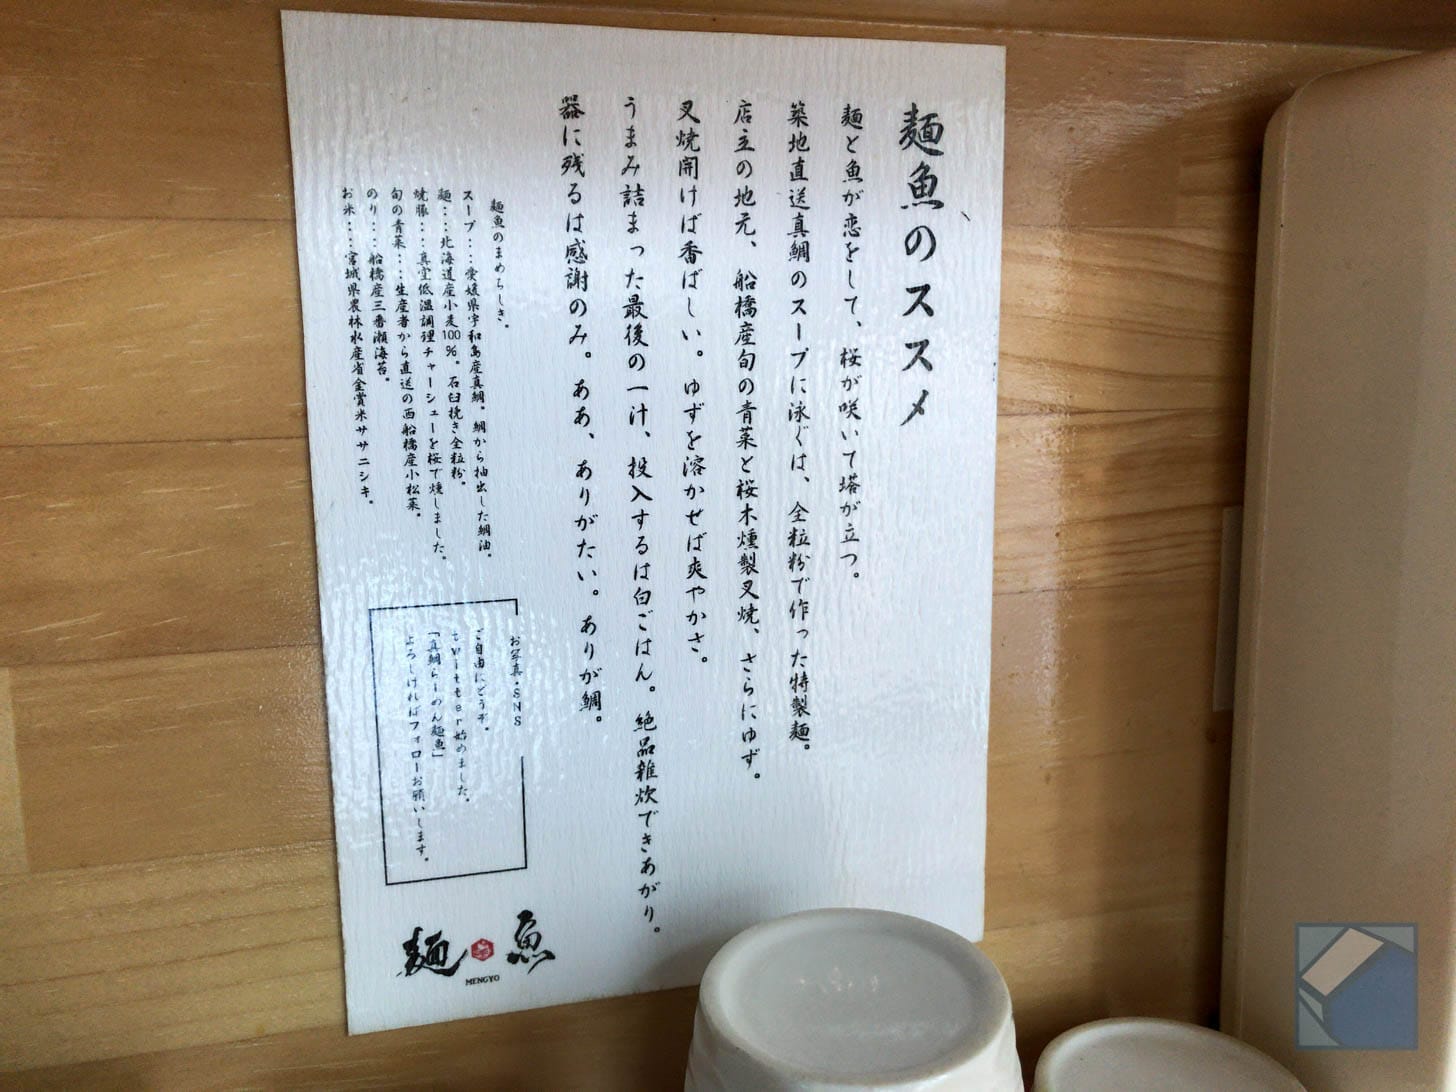 麺魚のススメ
麺と魚が恋をして、桜が咲いて塔が立つ。
築地直送真鯛のスープに泳ぐは、全粒粉で作った特製麺。
店主の地元、船橋産旬の青菜と桜木燻製叉焼、さらにゆず。
叉焼開けば香ばしい。ゆずを溶かせば爽やかさ。
うまみ詰まった最後の一汁、投入するは白ごはん。絶品雑炊できあがり。
器に残るは感謝のみ。ああ、ありがたい。ありが鯛。
麺魚のまめちしき。
スープ:::愛媛県宇和島産真鯛。鯛から抽出した鯛油。
麺:::北海道産小麦100%。石臼挽き全粒粉。
焼豚:::真空低温調理チャーシューを桜で燻しました。
旬の青菜:::生産者から直送の西船橋産小松菜。
のり:::船橋産三番瀬海苔。
お米:::宮城県農林水産省金賞米ササニシキ。
お写真・SNS
ご自由にどうぞ。
twitter始めました。
「真鯛らーめん麺魚」
よろしければフォローお願いします。
麺魚
MENGYO